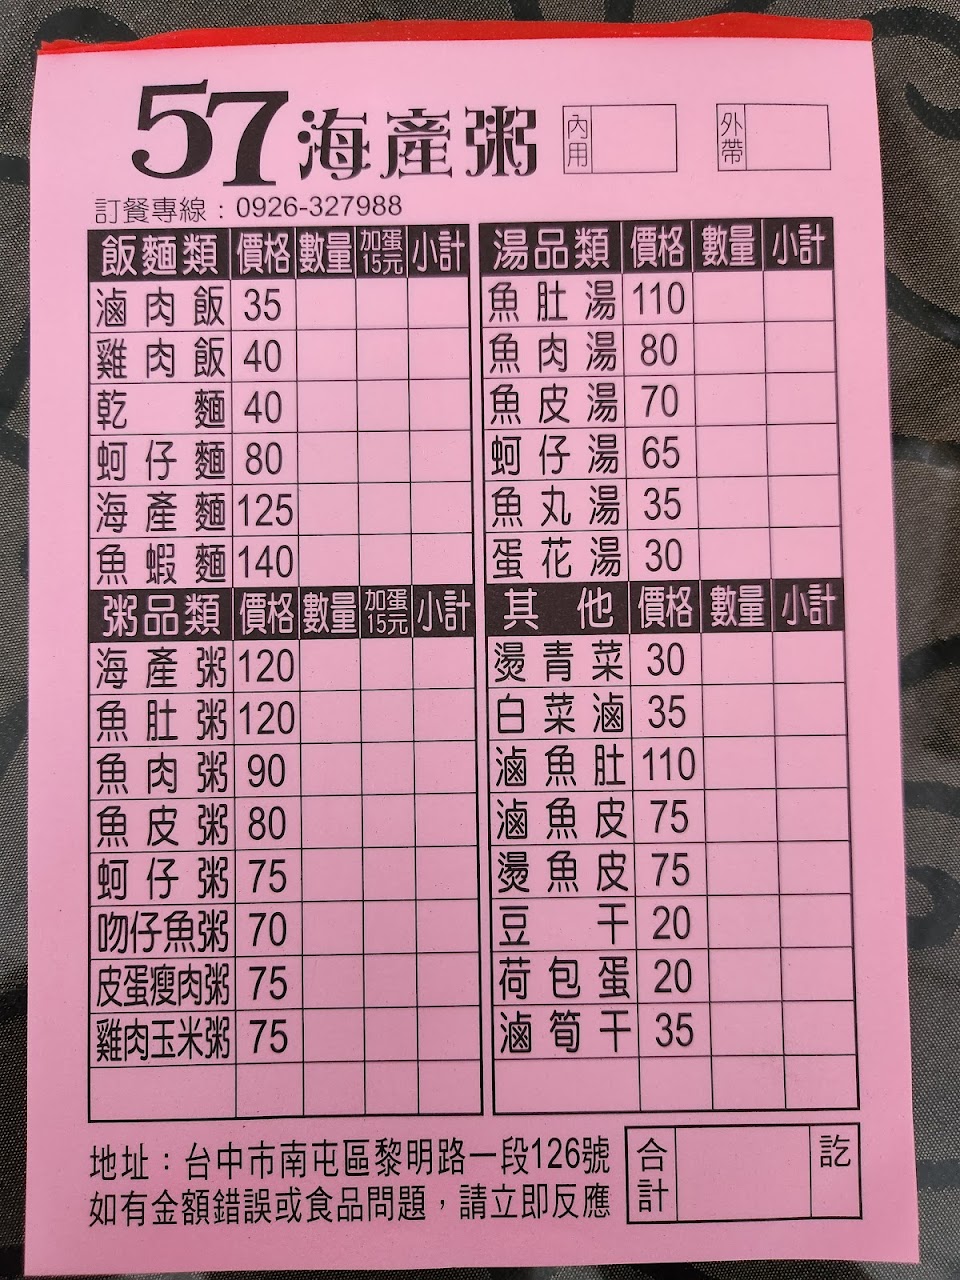 57海產粥
內用
外帶
訂餐專線：0926-327988
飯麵類 價格 數量 加蛋15元 小計
滷肉飯 35
雞肉飯 40
乾麵 40
蚵仔麵 80
海產麵 125
魚蝦麵 140
粥品類 價格 數量 加蛋15元 小計
海產粥 120
魚肚粥 120
魚肉粥 90
魚皮粥 80
蚵仔粥 75
吻仔魚粥 70
皮蛋瘦肉粥 75
雞肉玉米粥 75
湯品類 價格 數量 小計
魚肚湯 110
魚肉湯 80
魚皮湯 70
蚵仔湯 65
魚丸湯 35
蛋花湯 30
其他 價格 數量 小計
燙青菜 30
白菜滷 35
滷魚肚 110
滷魚皮 75
燙魚皮 75
豆干 20
荷包蛋 20
滷筍干 35
地址：台中市南屯區黎明路一段126號
如有金額錯誤或食品問題，請立即反應
合計 訖